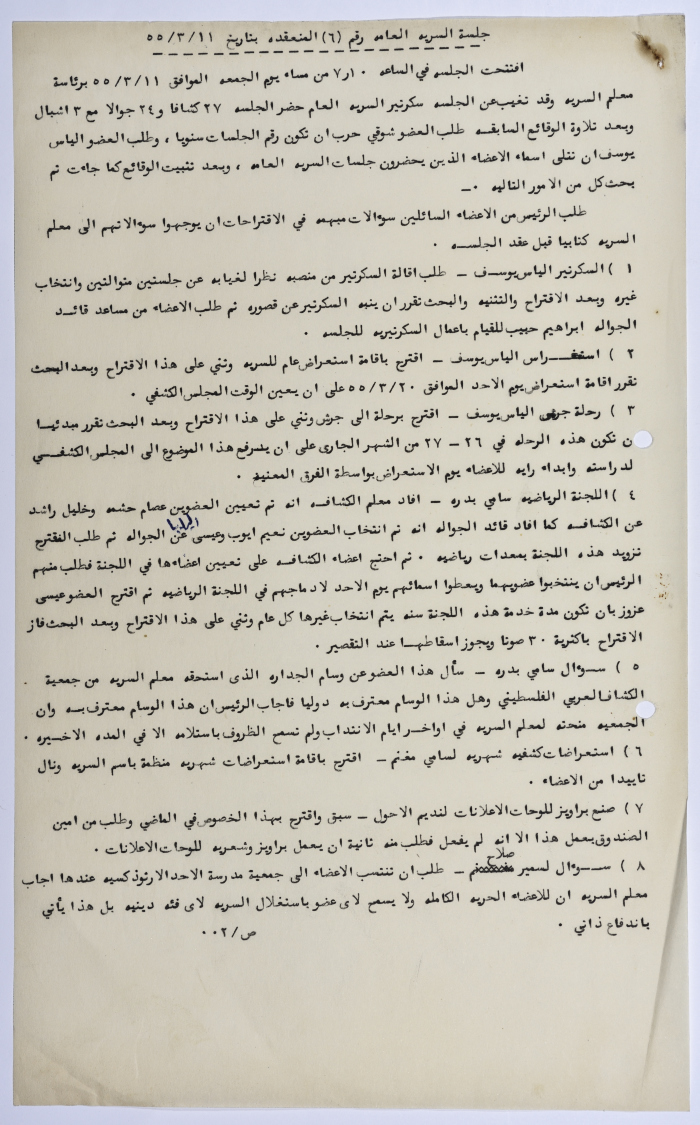 جلسة السريه العامه رقم (٦) المنعقده بتاريخ ٥٥/٣/١١
افتتحت الجلسه في الساعه ٧٫١٠ من مساء يوم الجمعه الموافق ٥٥/٣/١١ برئاسة
معلم السريه وقد تغيب عن الجلسه سكرتير السريه العام حضر الجلسه ٢٧ كشافا و ٢٤ جوالا مع ٣ اشبال
وبعد تلاوة الوقائع السابقه طلب العضو شوقي حرب ان تكون رقم الجلسات سنويا ، وطلب العضو الياس
يوسف ان تتلى اسماء الاعضاء الذين يحضرون جلسات السريه العامه ، وبعد تثبيت الوقائع كما جاءت تم
بحث كل من الامور التاليه ٠ــ
طلب الرئيس من الاعضاء السائلين سوءالات مبهمه في الاقتراحات ان يوجهوا سوءالاتهم الى معلم
السريه كتابيا قبل عقد الجلسه ٠
١ ) السكرتير الياس يوسف ــ طلب اقالة السكرتير من منصبه نظرا لغيابه عن جلستين متوالتين وانتخاب
غيره وبعد الاقتراح والتثنيه والبحث تقرر ان ينبه السكرتير عن قصوره تم طلب الاعضاء من مساعد قائد
الجواله ابراهيم حبيب للقيام باعمال السكرتيريه للجلسه ٠
٢ ) استعراض الياس يوسف ــ اقترح باقامة استعراض عام للسريه وثني على هذا الاقتراح وبعد البحث
تقرر اقامة استعراض يوم الاحد الموافق ٥٥/٣/٢٠ على ان يعين الوقت المجلس الكشفي ٠
٣ ) رحلة جرش الياس يوسف ــ اقترح برحلة الى جرش وثني على هذا الاقتراح وبعد البحث تقرر مبدئيا
ن تكون هذه الرحله في ٢٦ ــ ٢٧ من الشهر الجارى على ان يرفع هذا الموضوع الى المجلس الكشفي
لدراسته وابداء رايه للاعضاء يوم الاستعراض بواسطة الفرق المعنيه ٠
٤ ) اللجنة الرياضيه سامي بدره ــ افاد معلم الكشافه انه تم تعيين العضوين عصام حشمه وخليل راشد
عن الكشافه كما افاد قائد الجواله انه تم انتخاب العضوين نعيم ايوب وعيسى عن الجواله تم طلب المقترح
تزويد هذه اللجنة بمعدات رياضيه ٠ تم احتج اعضاء الكشافه على تعيين اعضاءها في اللجنة فطلب منهم
الرئيس ان ينتخبوا عضويهما ويعطوا اسمائهم يوم الاحد لادماجهم في اللجنة الرياضيه تم اقترح العضو عيسى
عزوز بان تكون مدة خدمة هذه اللجنة سنه يتم انتخاب غيرها كل عام وثني على هذا الاقتراح وبعد البحث فاز
الاقتراح باكثرية ٣٠ صوتا ويجوز اسقاطها عند التقصير ٠
٥ ) سوءال سامي بدره ــ سأل هذا العضو عن وسام الجداره الذى استحقه معلم السريه من جمعية
الكشاف العربي الفلسطيني وهل هذا الوسام معترف به دوليا فاجاب الرئيس ان هذا الوسام معترف به وان
الجمعيه منحته لمعلم السريه في اواخر ايام الانتداب ولم تسمح الظروف باستلامه الا في المده الاخيره ٠
٦ ) استعراضات كشفيه شهريه لسامي مغنم ــ اقترح باقامة استعراضات شهريه منظمة باسم السريه ونال
تاييدا من الاعضاء ٠
٧ ) صنع براويز للوحات الاعلانات لنديم الاحول ــ سبق واقترح بهذا الخصوص في الماضي وطلب من امين
الصندوق بعمل هذا الا انه لم يفعل فطلب منه ثانية ان يعمل براويز وشعريه للوحات الاعلانات ٠
٨ ) سوءال لسمير صلاح ــ طلب ان تنتسب الاعضاء الى جمعية مدرسة الاحد الارثوذكسيه عندها اجاب
معلم السريه ان للاعضاء الحريه الكامله ولا يسمح لاى عضو باستغلال السريه لاى فئه دينيه بل هذا يأتي
باندفاع ذاتي ٠
ص/٠٠٢